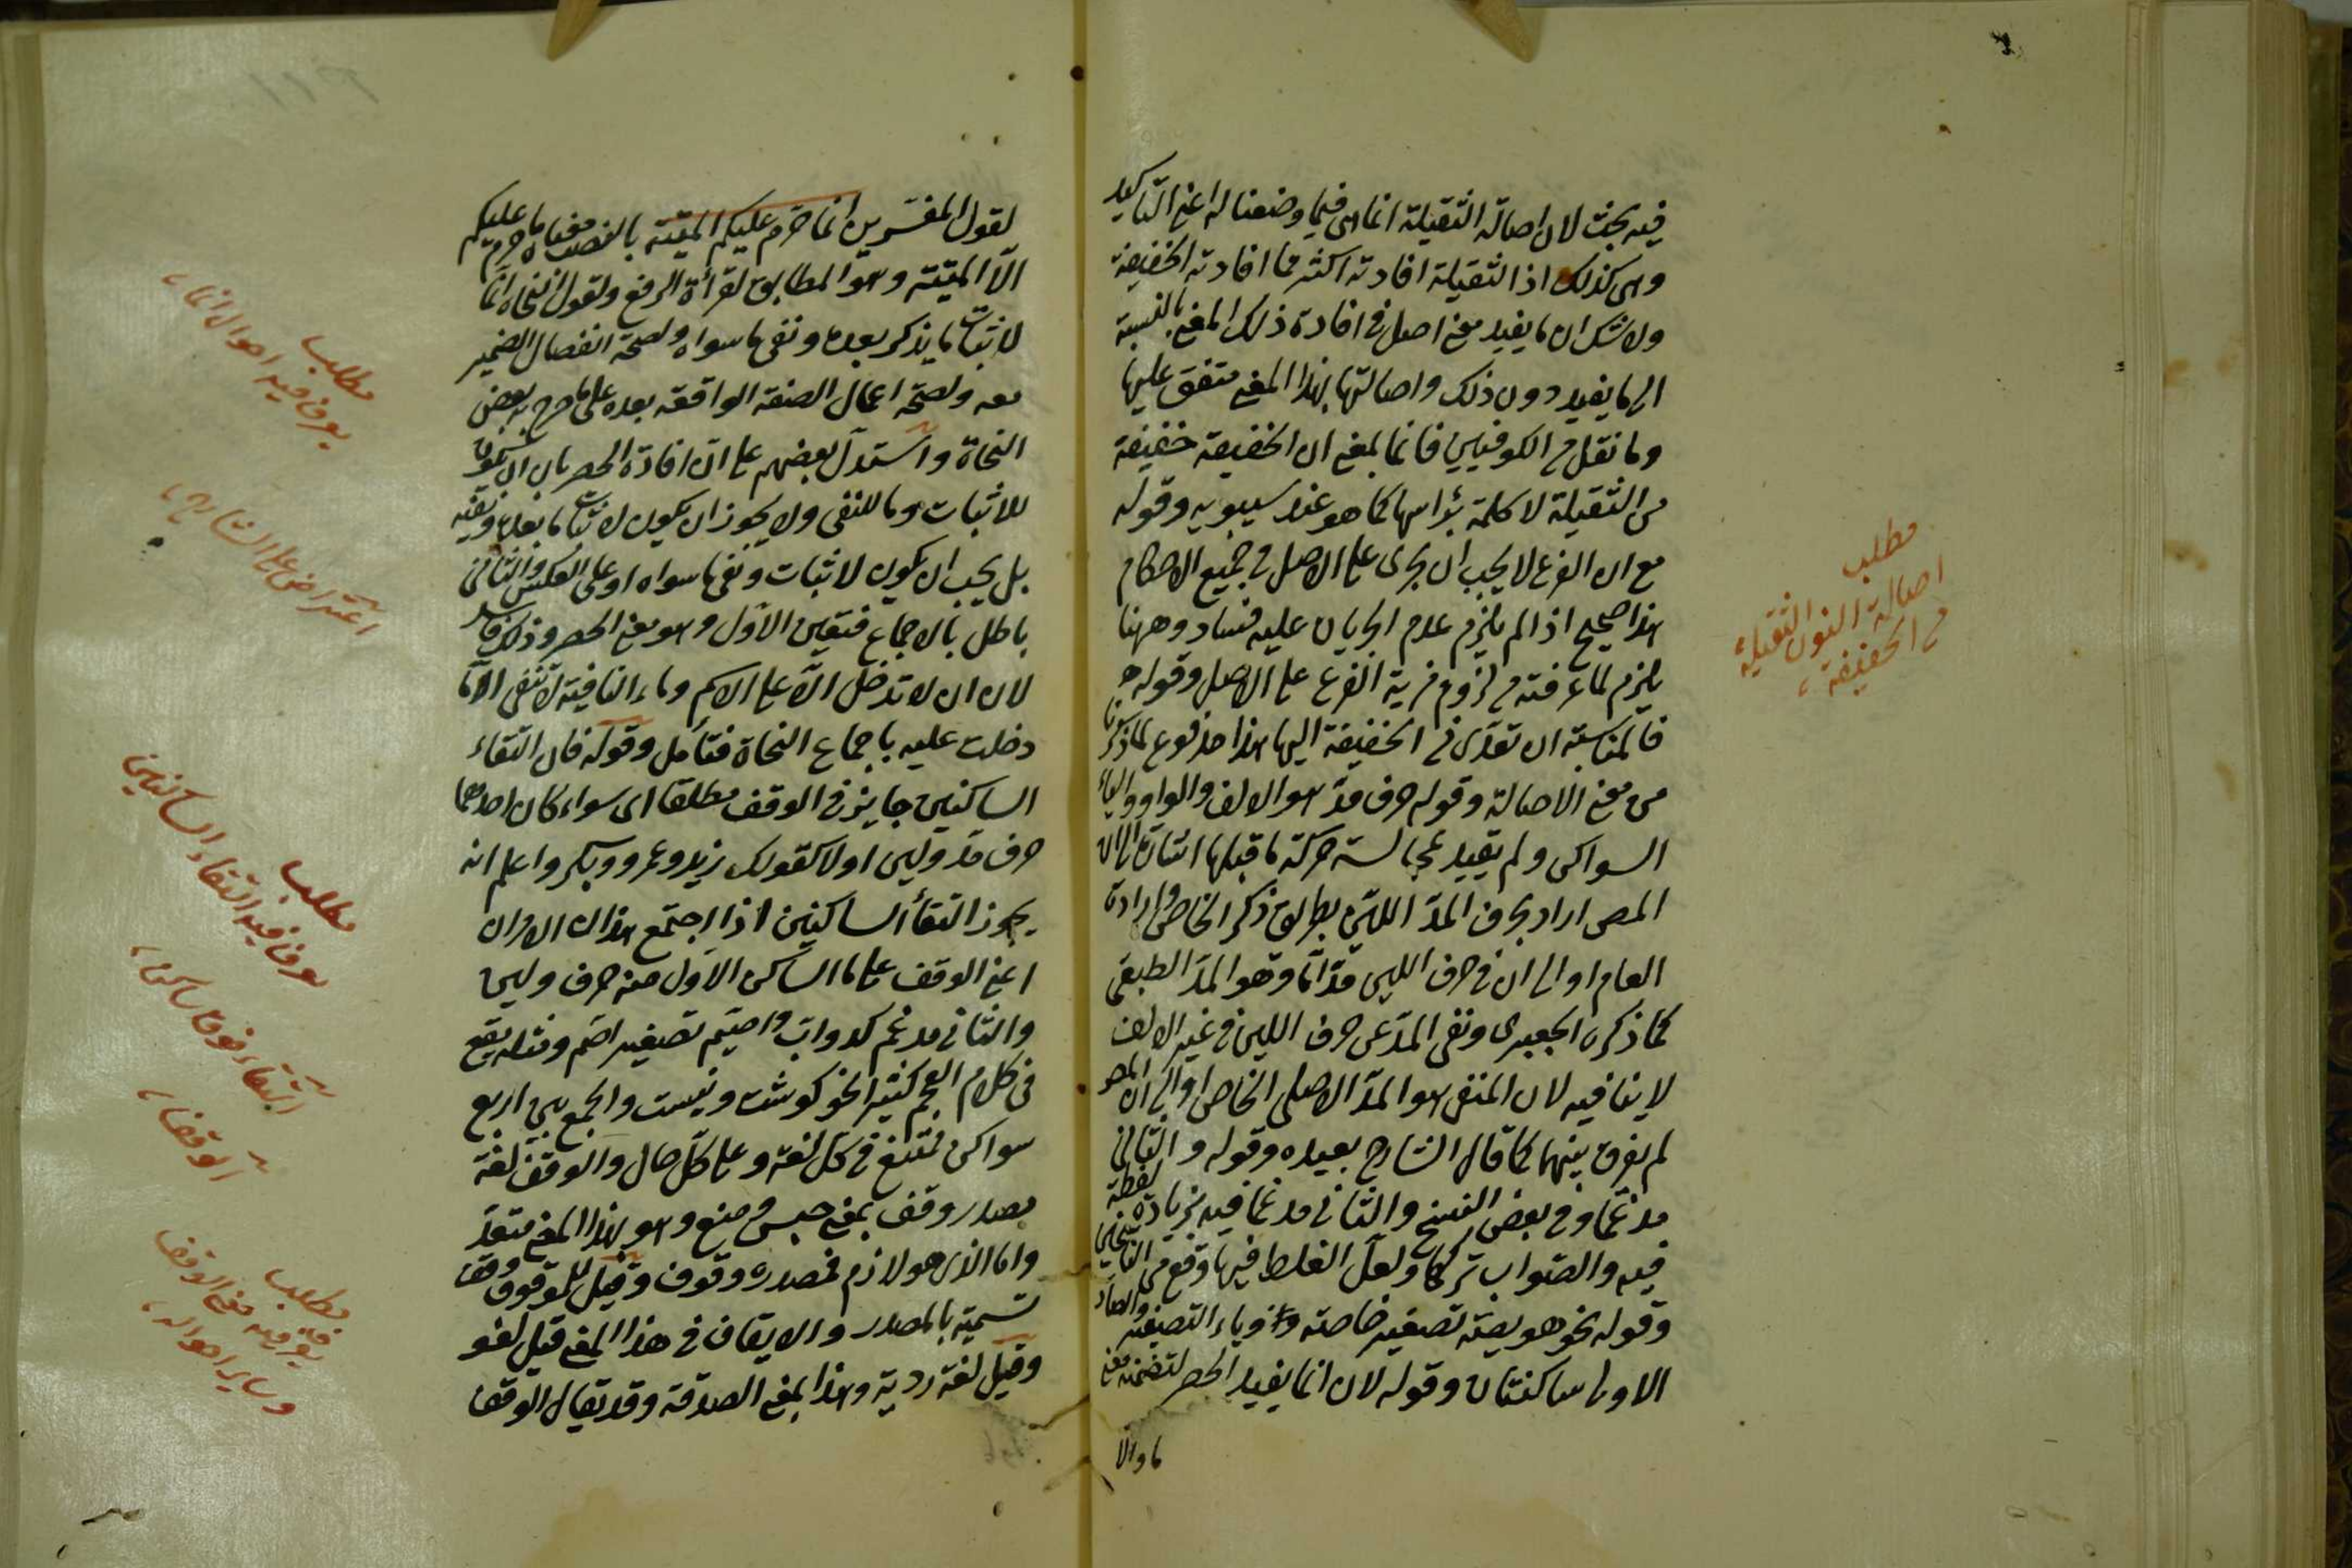 فيه بحث لان اصالة الثقيلة انما هى فيما وضعتا له اعنى التاكيد
وهى كذلك اذ الثقيلة افادته اكثر مما افادته الخفيفة
ولا شك ان ما يفيد معنى اصل فى افادة ذلك المعنى بالنسبة
الى ما يفيد دون ذلك واصالتها بهذا المعنى متفق عليها
وما نقل من الكوفيين فانما بمعنى ان الخفيفة خفيفة
من الثقيلة لا كلمة برأسها كما هو عند سيبويه وقوله
مع ان الفرع لا يجب ان يجرى على الاصل فى جميع الاحكام
هذا صحيح اذا لم يلزم عدم الجريان عليه فساد وههنا
يلزم لما عرفته من لزوم مزية الفرع على الاصل وقوله
فالمناسبة ان تعدى فى الخفيفة اليها هذا مدفوع لما ذكرنا
من معنى الاصالة وقوله حرف مد هو الالف والواو والياء
السواكن ولم يقيد بمجانسة حركة ما قبلها اشارة الى ان
المص اراد بحرف المد اللين بطريق ذكر الخاص وارادة
العام او الى ان فى حرف اللين مدا ما وهو المد الطبيعى
كما ذكره الجعبرى ونفى المد عن حرف اللين فى غير الالف
لا ينافيه لان المنفى هو المد الاصلى الخاص او الى ان المص
لم يفرق بينهما كما قال الشارح بعيده وقوله والثانى
مدغما وفى بعض النسخ والثانى مدغما فيه بزيادة لفظة
فيه والصواب تركها ولعل الغلط فيها وقع من الناسخين
وقوله نحو خويصة تصغير خاصة وياء التصغير والصاد
الاولى ساكنتان وقوله لان انما يفيد الحصر لتضمنه معنى
ما والا
مطلب
اصالة النون الثقيلة
من الخفيفة
لقول المفسرين انما حرم عليكم الميتة بالنصب معناه ما حرم عليكم
الا الميتة وهو المطابق لقرأة الرفع ولقول النحاة انما
لاثبات ما يذكر بعده ونفى ما سواه ولصحة انفصال الضمير
معه ولصحة اعمال الصفة الواقعة بعده على ما صرح به بعض
النحاة واستدل بعضهم على ان افادة الحصر بان ان يكون
للاثبات وما للنفى ولا يجوز ان يكون لاثبات ما بعده ونفيه
بل يجب ان يكون لاثبات ونفى ما سواه او على العكس والثانى
باطل بالاجماع فتعين الاول وهو معنى الحصر وذلك فاسد
لان ان لا تدخل الا على الاسم وما النافية لا تنفى الا ما
دخلت عليه باجماع النحاة فتأمل وقوله فان التقاء
الساكنين جايز فى الوقف مطلقا اى سواء كان احدهما
حرف مد ولين او لا كقولك زيد وعمرو وبكر واعلم انه
يجوز التقأ الساكنين اذا اجتمع هذان الامران
اعنى الوقف على ما الساكن الاول منه حرف ولين
والثانى مدغم كدواب واصيم تصغير اصم ومثله يقع
فى كلام العجم كثيرا نحو كوشت ونيست والجمع بين اربع
سواكن ممتنع فى كل لغة وعلى كل حال والوقف لغة
مصدر وقف بمعنى حبس ومنع وهو بهذا المعنى متعد
واما الذى هو لازم فمصدره وقوف وقيل للموقوف وقف
تسمية بالمصدر والايقاف فى هذا المعنى قيل لغو
وقيل لغة ردية وهذا بمعنى الصدقة وقد يقال الوقف
مطلب
يعرف فيه احوال انما
اعتراض على الشارح
مطلب
يعرف فيه التقاء الساكنين
التقاء
الوقف
مطلب
يعرف فيه معنى الوقف
وساير احواله